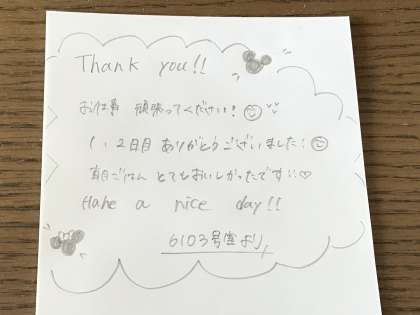 Thank you!!
お仕事 頑張ってください!
1、2日目 ありがとうございました!
朝ごはん とてもおいしかったです!!♡
Have a nice day!!
6103号室より